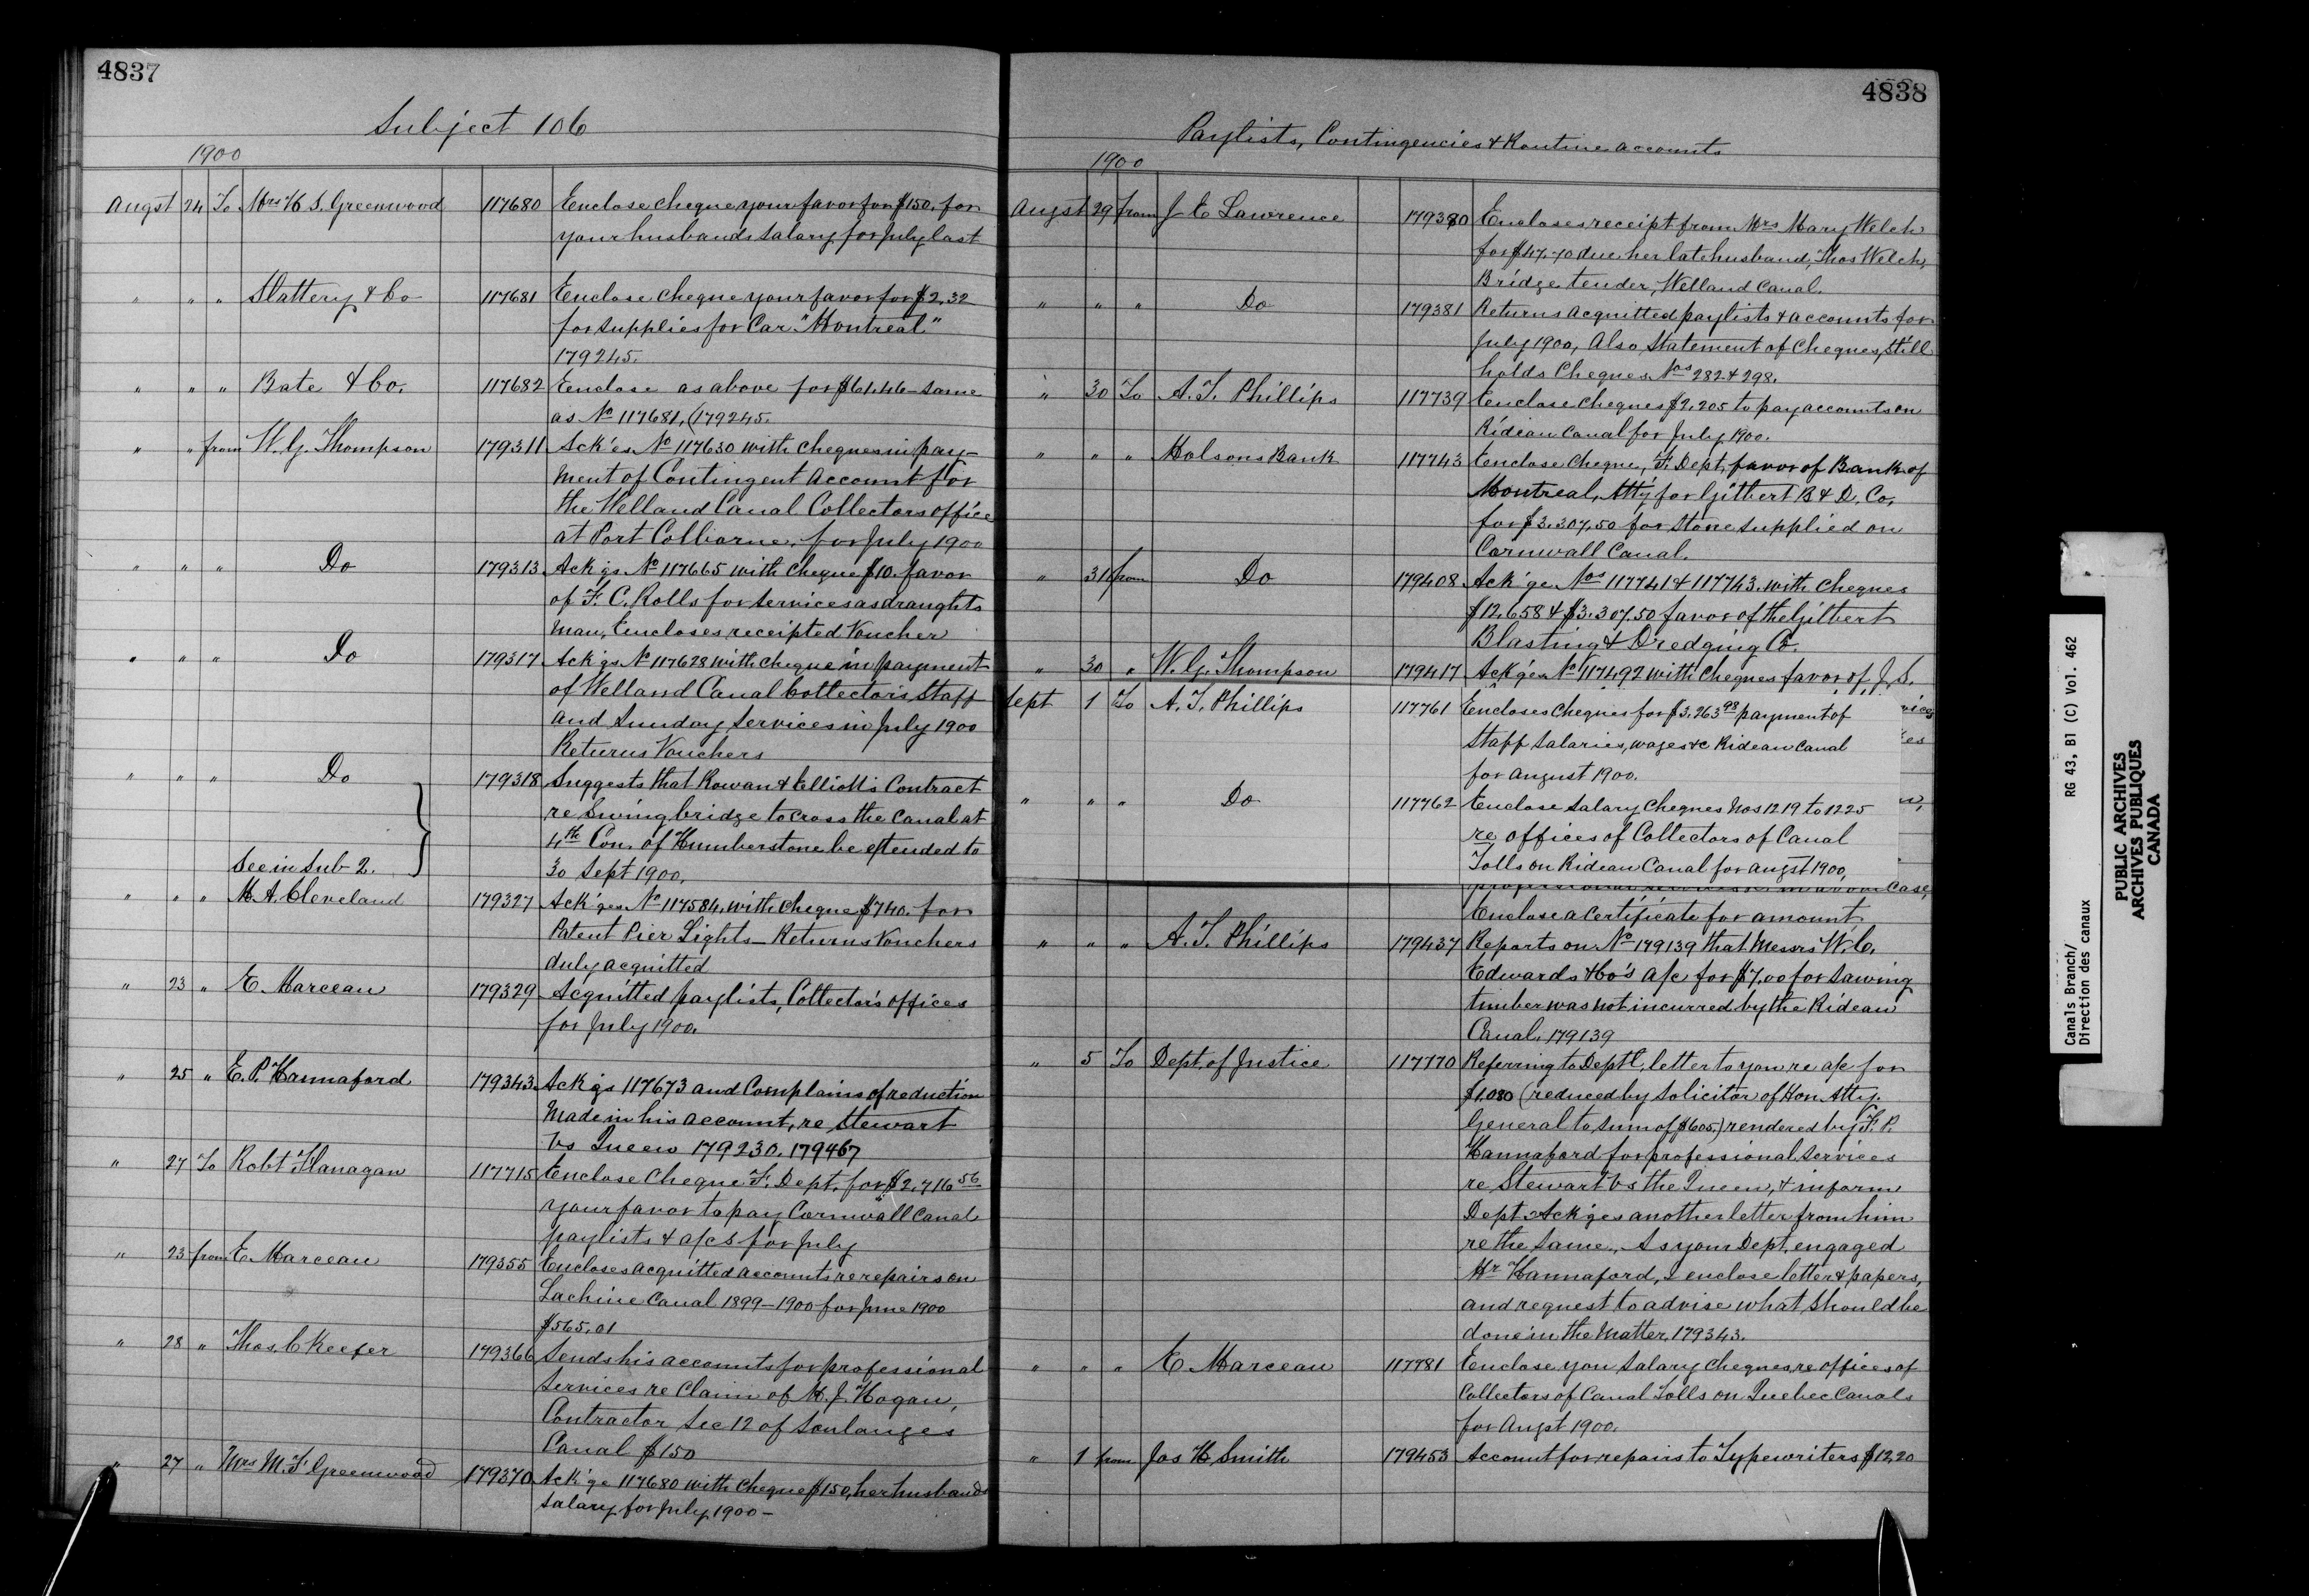 4837
Subject 106
1900
Augst 24 To Mrs H S. Greenwood 117680 Enclose cheque your favor for $150. for
your husbands salary for July last
" " " Slattery & Co 117681 Enclose cheque your favor for $2.32
for supplies for Car "Montreal"
179245.
" " " Bate & Co. 117682 Enclose as above for $61.46 - same
as No 117681, (179245.
" " from W. G. Thompson 179311 Ack'es No 117630 with cheques in pay-
ment of Contingent Account for
the Welland Canal Collectors office
at Port Colborne, for July 1900
" " " Do 179313 Ack'gs No 117665 with cheque $10. favor
of F. C. Rolls for services as draughts
man, Encloses receipted Voucher
" " " Do 179317 Ack'gs No 117628 with cheque in payment
of Welland Canal Collector's, Staff
and Sunday Services in July 1900
Returns Vouchers
" " " Do 179318 Suggests that Rowan & Elliott's Contract
re Swing bridge to cross the Canal at
4th Con. of Humberstone be extended to
See in Sub 2. 30 Sept 1900.
" " " M. A. Cleveland 179327 Ack'ges No 117584, with cheque $740. for
Patent Pier Lights - Returns Vouchers
duly acquitted
" 23 " E. Marceau 179329 Acquitted paylists, Collector's offices
for July 1900.
" 25 " E. P. Hannaford 179343 Ack'gs 117673 and Complains of reduction
made in his account, re Stewart
vs Queen 179230. 179467
" 27 To Robt Flanagan 117715 Enclose Cheque F. Dept. for $2,716 56
your favor to pay Cornwall Canal
paylists & a/cs for July
" 23 from E. Marceau 179355 Encloses acquitted accounts re repairs on
Lachine Canal 1899-1900 for June 1900
$565.01
" 28 " Thos. C Keefer 179366 Sends his accounts for professional
services re Claim of M. J. Hogan,
Contractor Sec 12 of Soulanges
Canal $150
" 27 " Mrs M. F. Greenwood 179370 Ack'ge 117680 with cheque $150, her husbands
salary for July 1900 -
4838
Paylists, Contingencies & Routine accounts
1900
Augst 29 from J E Lawrence 179380 Encloses receipt from Mrs Mary Welch
for $47.70 due her late husband, Thos Welch,
Bridge tender, Welland Canal.
" " " Do 179381 Returns acquitted paylists & accounts for
July 1900, Also Statement of Cheques, Still
holds Cheques Nos 282 & 298.
" 30 To A. T. Phillips 117739 Enclose cheques $2,205 to pay accounts on
Rideau Canal for July 1900.
" " " Molsons Bank 117743 Enclose cheque, F. Dept, favor of Bank of
Montreal, Att'y for Gilbert B & D. Co,
for $3.307.50 for Stone supplied on
Cornwall Canal.
" 31 from Do 179408 Ack'ge Nos 117741 & 117743, with cheques
$12,658 & $3.307.50 favor of the Gilbert
Blasting & Dredging Co.
" 30 " W. G. Thompson 179417 Ack'ges No 117492 with cheques favor of J. S.
Sept 1 To A. T. Phillips 117761 Encloses Cheques for $3,263 98 payment of
Staff Salaries, wages &c Rideau Canal
for August 1900.
" " " Do 117762 Enclose salary cheques Nos 1219 to 1225
re offices of Collectors of Canal
Tolls on Rideau Canal for Augst 1900,
case,
Enclose a certificate for amount
" " " A. T. Phillips 179437 Reports on No 179139 that Messrs W. C.
Edwards & Co's a/c for $7.00 for sawing
timber was not incurred by the Rideau
Canal. 179139
" 5 To Dept. of Justice 117770 Referring to Dept'l, letter to you re a/c for
$1,080 (reduced by Solicitor of Hon. Atty.
General to sum of $605.) rendered by F. P.
Hannaford for professional services
re Stewart vs the Queen, & inform
Dept. Ack'ges another letter from him
re the same. As your Dept. engaged
Mr Hannaford, I enclose letter & papers,
and request to advise what should be
done in the matter. 179343.
" " " E. Marceau 117781 Enclose you salary cheques, re offices of
Collectors of Canal Tolls on Quebec Canals
for Augst 1900.
" 1 from Jas H. Smith 179453 Account for repairs to Typewriters $12.20
Canals Branch/
Direction des canaux
RG 43, B1 (C) Vol. 462
PUBLIC ARCHIVES
ARCHIVES PUBLIQUES
CANADA